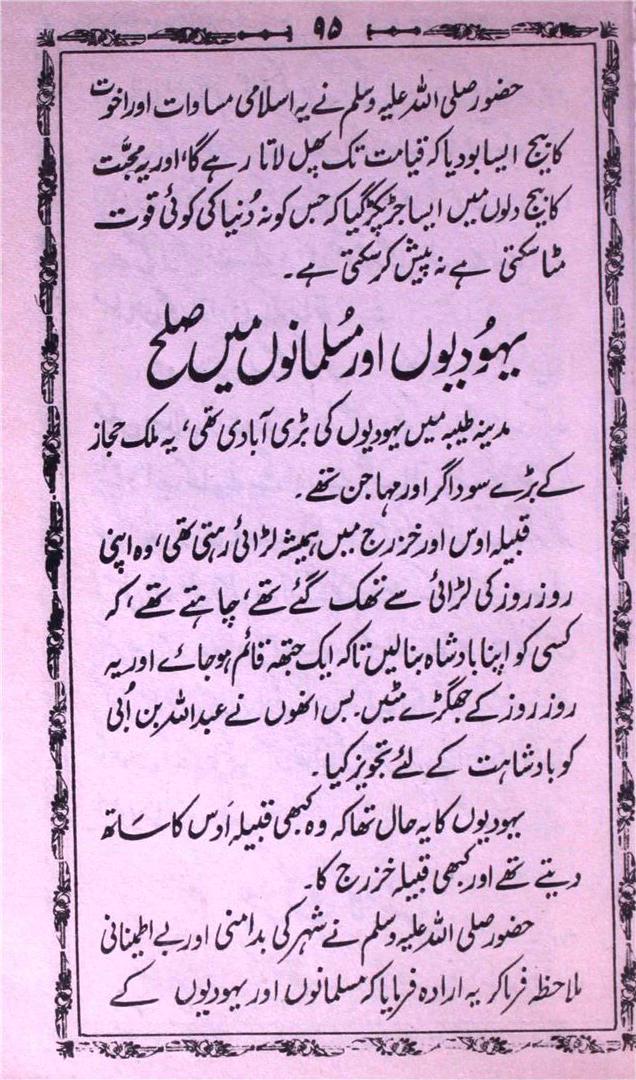 ۹۵
حضور صلی اللہ علیہ وسلم نے یہ اسلامی مساوات اور اخوت
کا بیج ایسا بو دیا کہ قیامت تک پھل لاتا رہے گا، اور یہ محبّت
کا بیج دلوں میں ایسا جڑ پکڑ گیا کہ جس کو نہ دُنیا کی کوئی قوت
مٹا سکتی ہے نہ پیش کر سکتی ہے۔
یہُودیوں اور مُسلمانوں میں صلح
مدینہ طیبہ میں یہودیوں کی بڑی آبادی تھی، یہ ملک حجاز
کے بڑے سوداگر اور مہاجن تھے۔
قبیلہ اوس اور خزرج میں ہمیشہ لڑائی رہتی تھی، وہ اپنی
روز روز کی لڑائی سے تھک گئے تھے، چاہتے تھے، کہ
کسی کو اپنا بادشاہ بنا لیں تاکہ ایک جتھہ قائم ہو جائے اور یہ
روز روز کے جھگڑے مٹیں۔ بس انھوں نے عبداللہ بن اُبی
کو بادشاہت کے لئے تجویز کیا۔
یہودیوں کا یہ حال تھا کہ وہ کبھی قبیلہ اَوس کا سَاتھ
دیتے تھے اور کبھی قبیلہ خزرج کا۔
حضور صلی اللہ علیہ وسلم نے شہر کی بدامنی اور بے اطمینانی
ملاحظہ فرما کر یہ ارادہ فرمایا کہ مسلمانوں اور یہودیوں کے